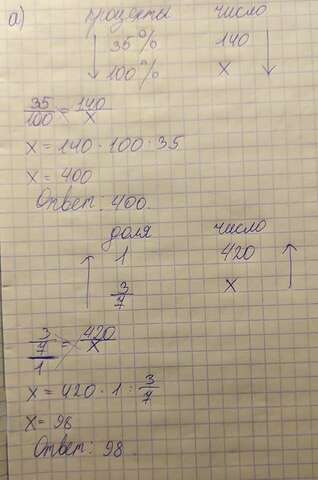 а) проценты число
35% 140
100% х
35/100 = 140/х
х = 140 · 100 : 35
х = 400
Ответ: 400.
доля число
1 420
3/7 х
3/7/1 = 420/х
х = 420 · 1 : 3/7
х = 96
Ответ: 98.